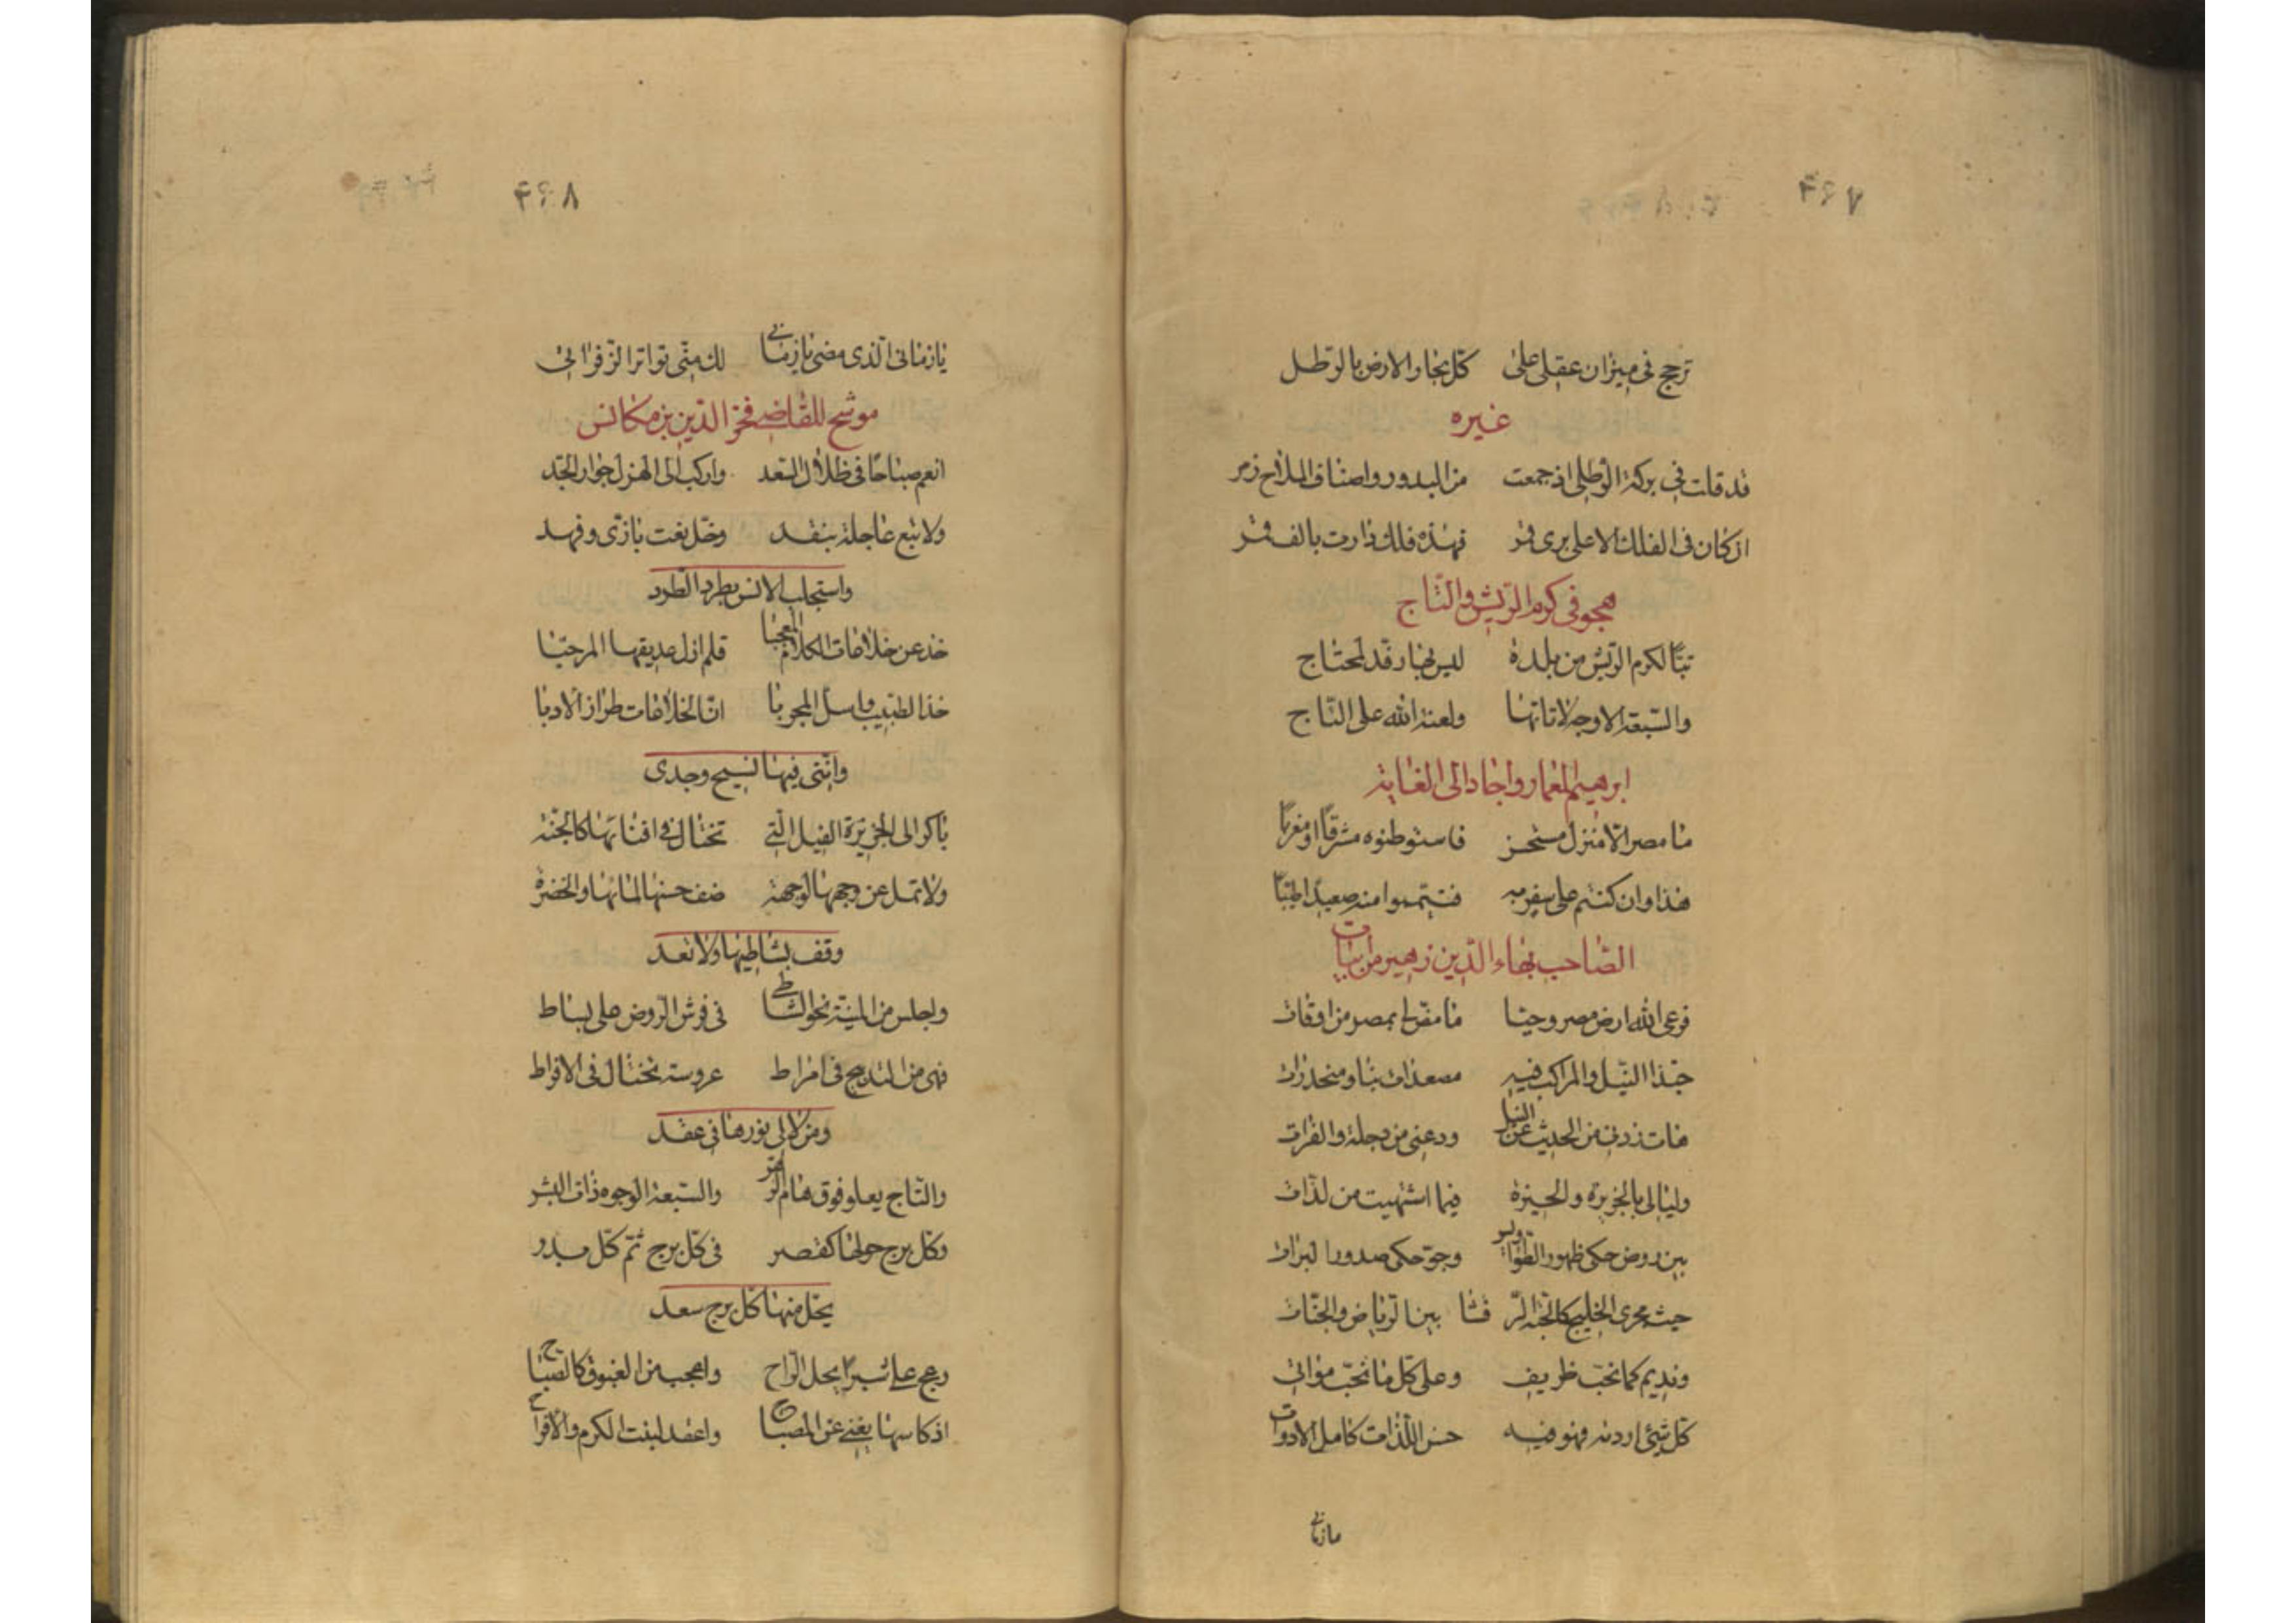 ۴۶۷
ترجح فی میزان عقلی علی کل بحار الارض بالرطل
غیره
قد قلت فی برکة الرطلی اذ جمعت من البدور واصناف الملاح زمر
ان کان فی الفلک الاعلی یری قمر فهذه فلک دارت بالف قمر
هجو فی کوم الریش والتاج
تبًّا لکوم الریش من بلدة لیس بها رفد لمحتاج
والسبعة الاوجه لاتاتها ولعنة الله علی التاج
ابرهیم المعمار واجاد الی الغایة
ما مصر الا منزل مستحسن فاستوطنوه مشرقًا او مغربًا
هذا وان کنتم علی سفر به فتیمموا منه صعیدًا طیبًا
الصاحب بهاء الدین زهیر من ابیات
فرعی الله ارض مصر وحیا ما مضی لی بمصر من اوقات
حبذا النیل والمراکب فیه مصعدات بنا ومنحدرات
هات زدنی من الحدیث عن النیل ودعنی من دجلة والفرات
ولیالی بالجزیرة والجیزة فیما اشتهیت من لذات
بین روض حکی ظهور الطواویس وجو حکی صدور البزات
حیث مجری الخلیج کالحیة الر قشا بین الریاض والجنات
وندیم کما تحب ظریف وعلی کل ما تحب مواتی
کل شیئ اردته فهو فیه حسن الذات کامل الادوات
یازمانی
۴۶۸
یا زمانی الذی مضی یا زمانی لک منی تواتر الزفرات
موشح للقاضی فخر الدین بن مکانس
انعم صباحًا فی ظلال السعد وارکب الی الهزل جواد الجد
ولا تبع عاجلة بنقد وخل نعت بازی وفهد
واستجلب الانس بطرد الطرد
خذ عن خلاعات الکلام المعجبا فلم ازل صدیقها المرحبا
خذ الطبیب واسأل المجربا ان الخلاعات طراز الادبا
واننی فیها نسیج وحدی
باکر الی الجزیرة الفیل التی تختال فی افنانها کالجنة
ولا تمل عن وجهها لوجهة صف حسنها لمائها والخضرة
وقف بشاطیها ولا تعد
واجلس من المنیة نحو الشاطی فی فرش الروض علی بساط
فهی من التدبیج فی امراط عروسة تختال فی الاقراط
ومن لالی نورها فی عقد
والتاج یعلو فوق هام الزهر والسبعة الوجوه ذات البشر
وکل برج حولها کقصر فی کل برج ثم کل بدر
یحل منها کل برج سعد
وعج علی شبرا محل الراح واعجب من الغبوق کالصباح
اذ کاسها یغنی عن المصباح واعقد لبنت الکرم والافراح